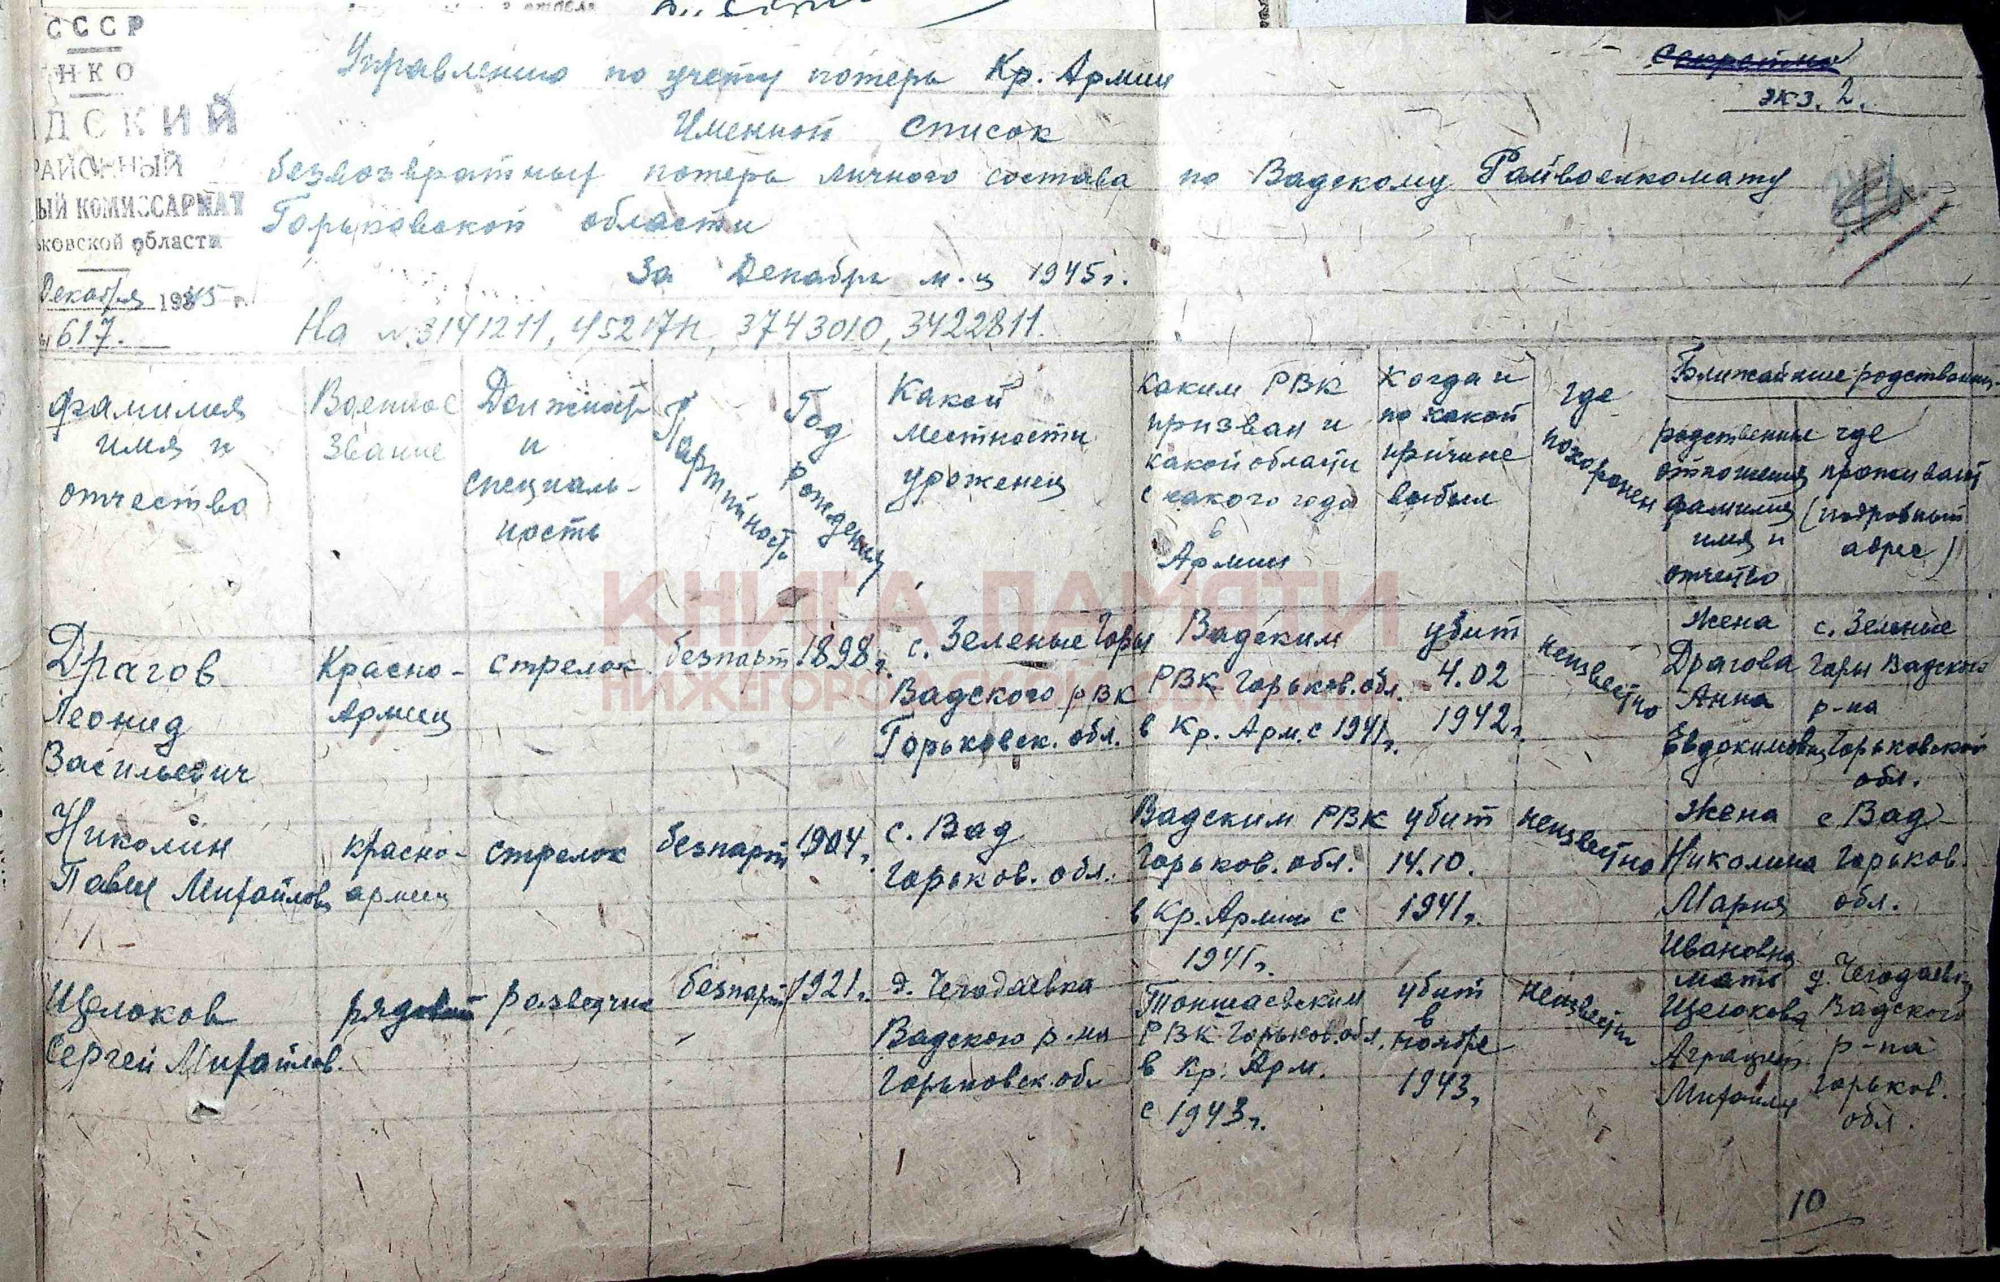 СССР
НКО
ДСКИЙ
РАЙОННЫЙ
ЫЙ КОМИССАРИАТ
ьковской области
Декабря 1945 г.
617.
Секретно
экз. 2.
Управлению по учету потерь Кр. Армии
Именной список
безвозвратных потерь личного состава по Вадскому Райвоенкомату
Горьковской области
За Декабрь м-ц 1945 г.
На №. 3141211, 45217н, 3743010, 3422811.
фамилия имя и отчество
Военное звание
Должность и специальность
Партийность
Год рождения
Какой местности уроженец
каким РВК призван и какой области с какого года в Армии
Когда и по какой причине выбыл
где похоронен
Ближайшие родственники
родственные отношения фамилия имя и отчество
где проживает (подробный адрес)
Драгов Леонид Васильевич
Красноармеец
стрелок
безпарт
1898 г.
с. Зеленые Горы Вадского РВК Горьковск. обл.
Вадским РВК Горьков. обл. в Кр. Арм. с 1941 г.
убит 4.02 1942 г.
неизвестно
Жена Драгова Анна Евдокимовна
с. Зеленые Горы Вадского р-на Горьковской обл.
Николин Павел Михайлов
красноармеец
стрелок
безпарт
1904 г.
с. Вад Горьков. обл.
Вадским РВК Горьков. обл. в Кр. Армии с 1941 г.
убит 14.10. 1941 г.
неизвестно
Жена Николина Мария Ивановна
с Вад Горьков. обл.
Щелоков Сергей Михайлов.
рядовой
разведчик
безпарт
1921 г.
д. Чегодаевка Вадского р-на Горьковск. обл
Тоншаевским РВК Горьков. обл. в Кр. Арм. с 1943 г.
убит в ноябре 1943 г.
неизвестн
мать Щелокова
д. Чегодаевка Вадского р-на Горьков. обл.
10
КНИГА ПАМЯТИ
НИЖЕГОРОДСКОЙ ОБЛАСТИ